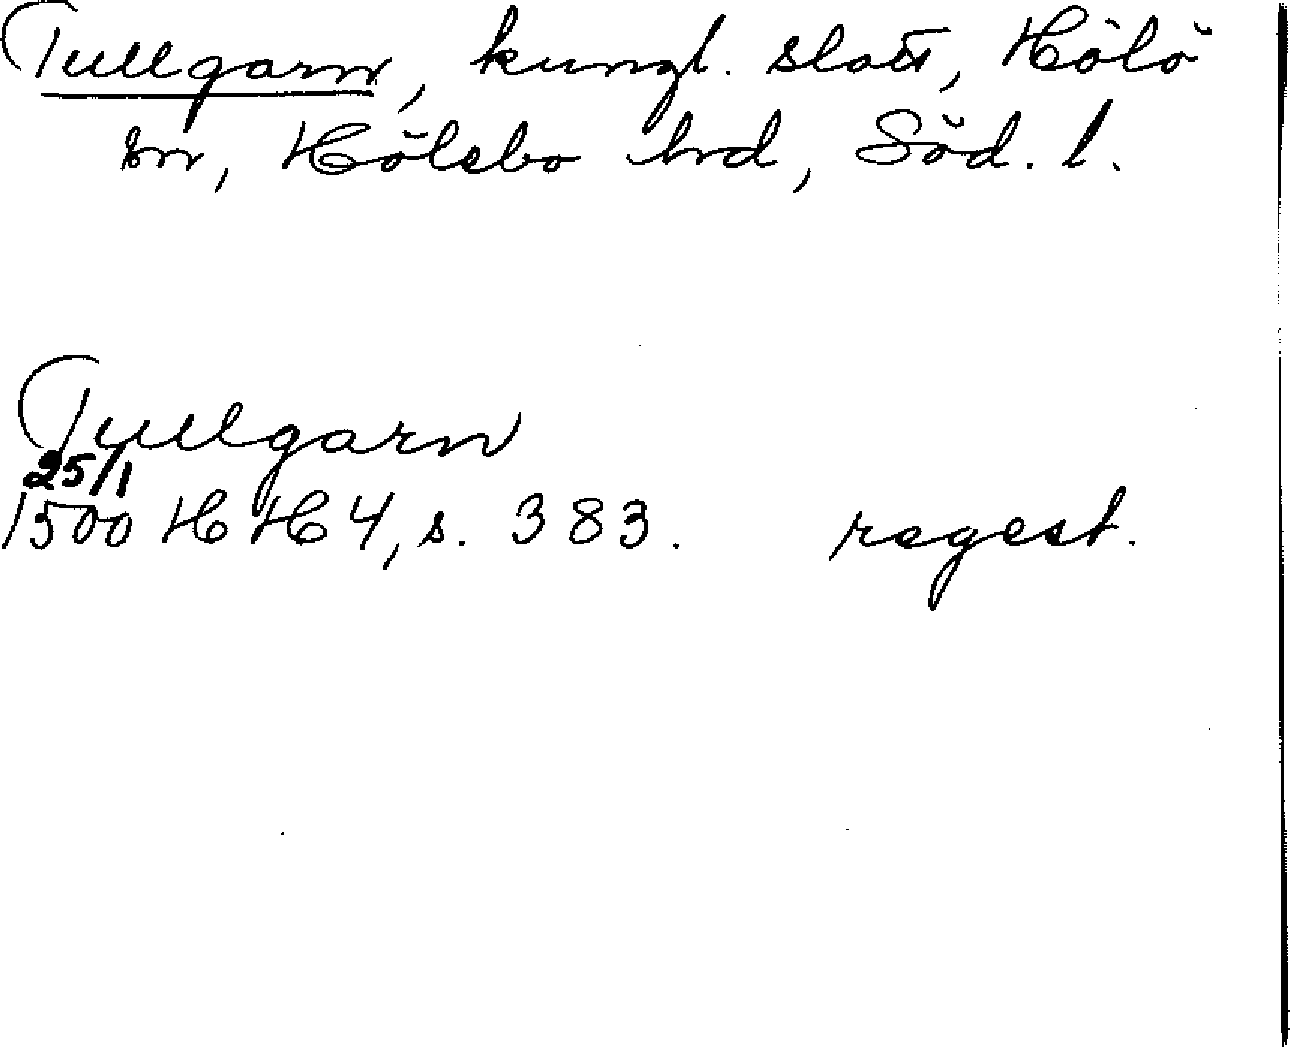 Tullgarn, kungl. slott, Hölö
sn, Hölebo hrd, Söd. l.
Tullgarn
25/1
1500 HH 4, s. 383. regest.